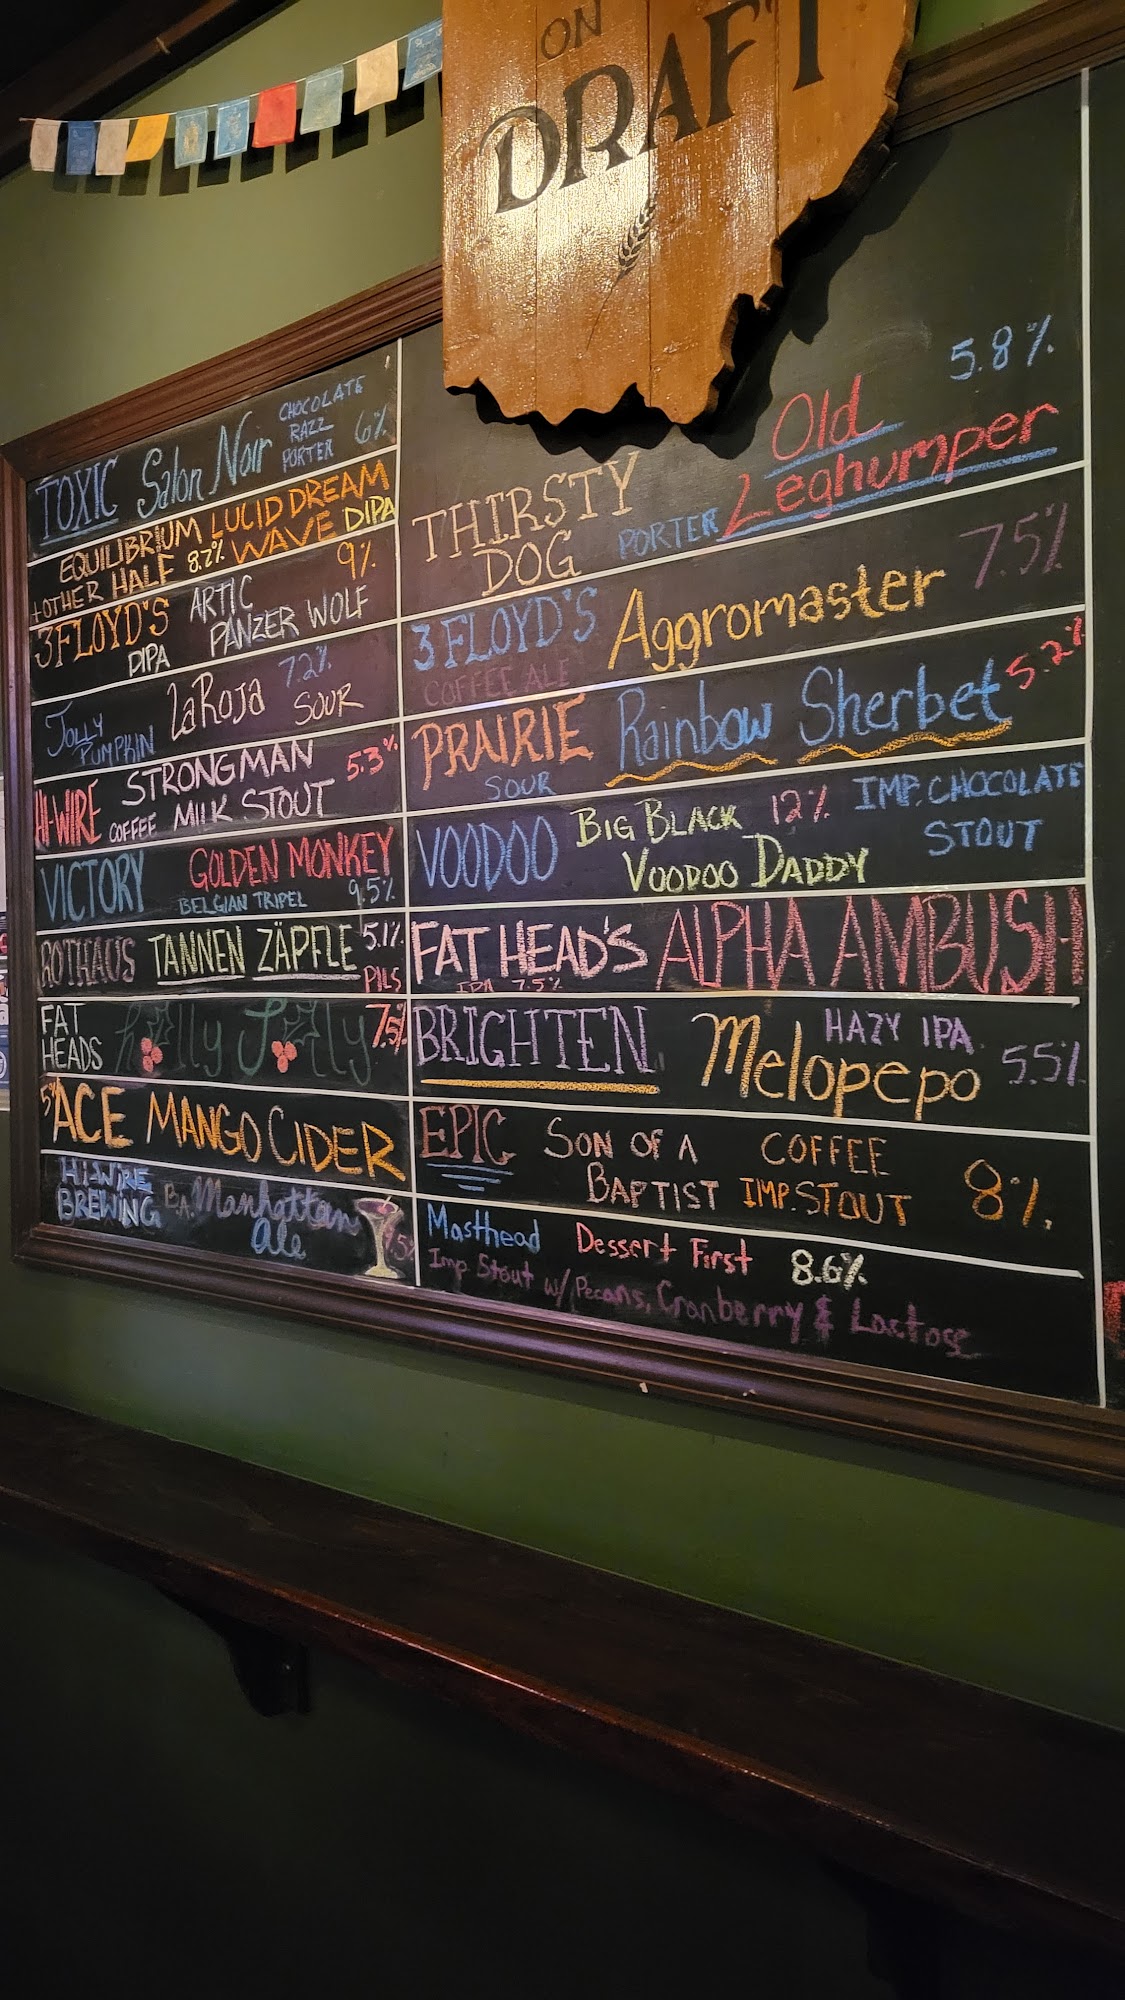 ON
DRAFT
TOXIC Salon Noir CHOCOLATE
RAZZ
PORTER 6%
EQUILIBRIUM LUCID DREAM
+OTHER HALF 8.2% WAVE DIPA
3 FLOYD'S ARTIC 9%
DIPA PANZER WOLF
JOLLY PUMPKIN LaRoja 7.2%
SOUR
HI-WIRE STRONGMAN 5.3%
COFFEE MILK STOUT
VICTORY GOLDEN MONKEY
BELGIAN TRIPEL 9.5%
ROTHAUS TANNEN ZÄPFLE 5.1%
PILS
FAT
HEADS holly Jolly 7.5%
5% ACE MANGO CIDER
HI-WIRE
BREWING B.A. Manhattan
ale
5.8%
THIRSTY
DOG PORTER
Old
Leghumper
3 FLOYD'S Aggromaster 7.5%
COFFEE ALE
PRAIRIE Rainbow Sherbet 5.2%
SOUR
VOODOO BIG BLACK 12% IMP. CHOCOLATE
VOODOO DADDY STOUT
FAT HEAD'S ALPHA AMBUSH
IPA 7.5%
BRIGHTEN Melopepo HAZY IPA 5.5%
EPIC SON OF A COFFEE
BAPTIST IMP. STOUT 8%
Masthead Dessert First 8.6%
Imp Stout w/ Pecans, Cranberry & Lactose